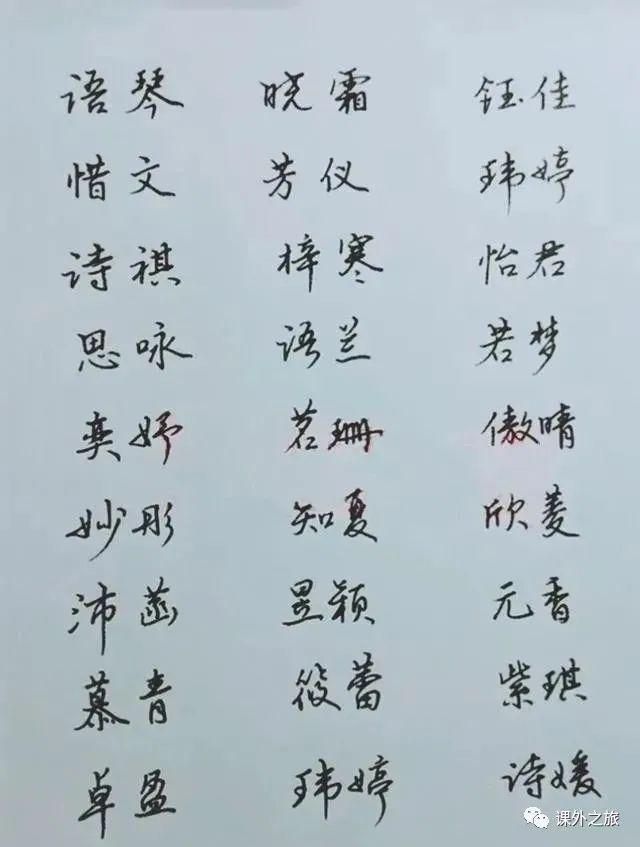 语琴 晓霜 钰佳
惜文 芳仪 玮婷
诗祺 梓寒 怡君
思咏 语兰 若梦
奕妤 茗珊 傲晴
妙彤 知夏 欣菱
沛菡 昱颖 元香
慕青 筱蕾 紫琪
卓盈 玮婷 诗媛
课外之旅